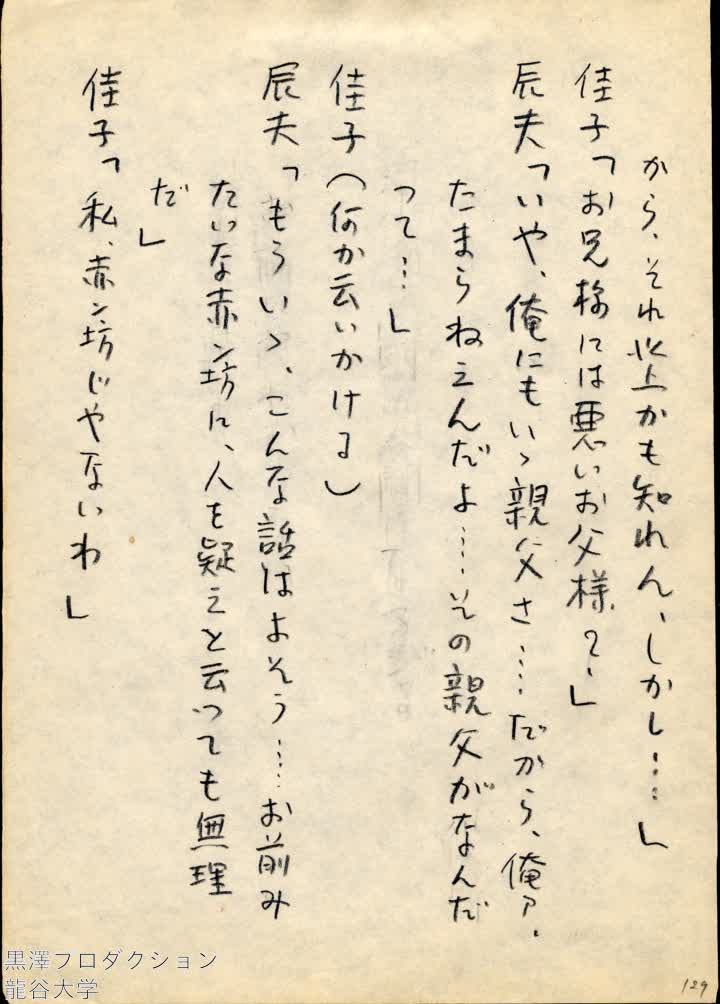 から、それ以上かも知れん、しかし……」
佳子「お兄様には悪いお父様？」
辰夫「いや、俺にもいゝ親父さ……だから、俺ァ、
たまらねえんだよ……その親父がなんだ
って…」
佳子（何か云いかける）
辰夫「もういゝ、こんな話はよそう……お前み
たいな赤ン坊に、人を疑えと云っても無理
だ」
佳子「私、赤ン坊じゃないわ」
129
黒澤プロダクション
龍谷大学